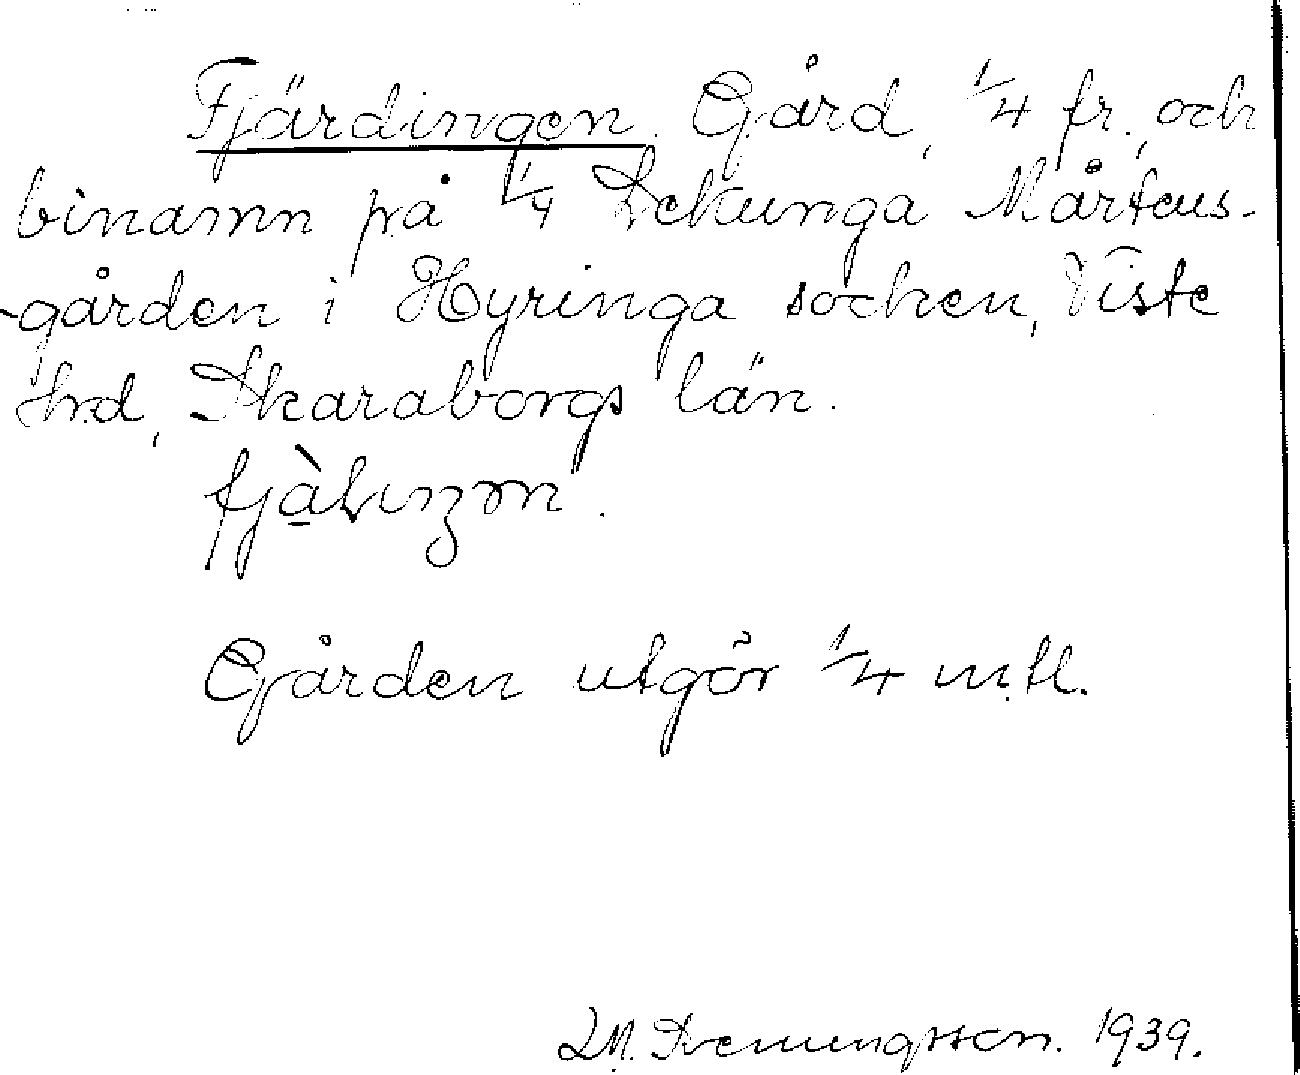 Fjärdingen. Gård, 1/4 fr., och
binamn på 1/4 Sekunga Mårtens-
-gården i Hyringa socken, Viste
hrd, Skaraborgs län.
Gården utgör 1/4 mtl.
Svenungsson. 1939.